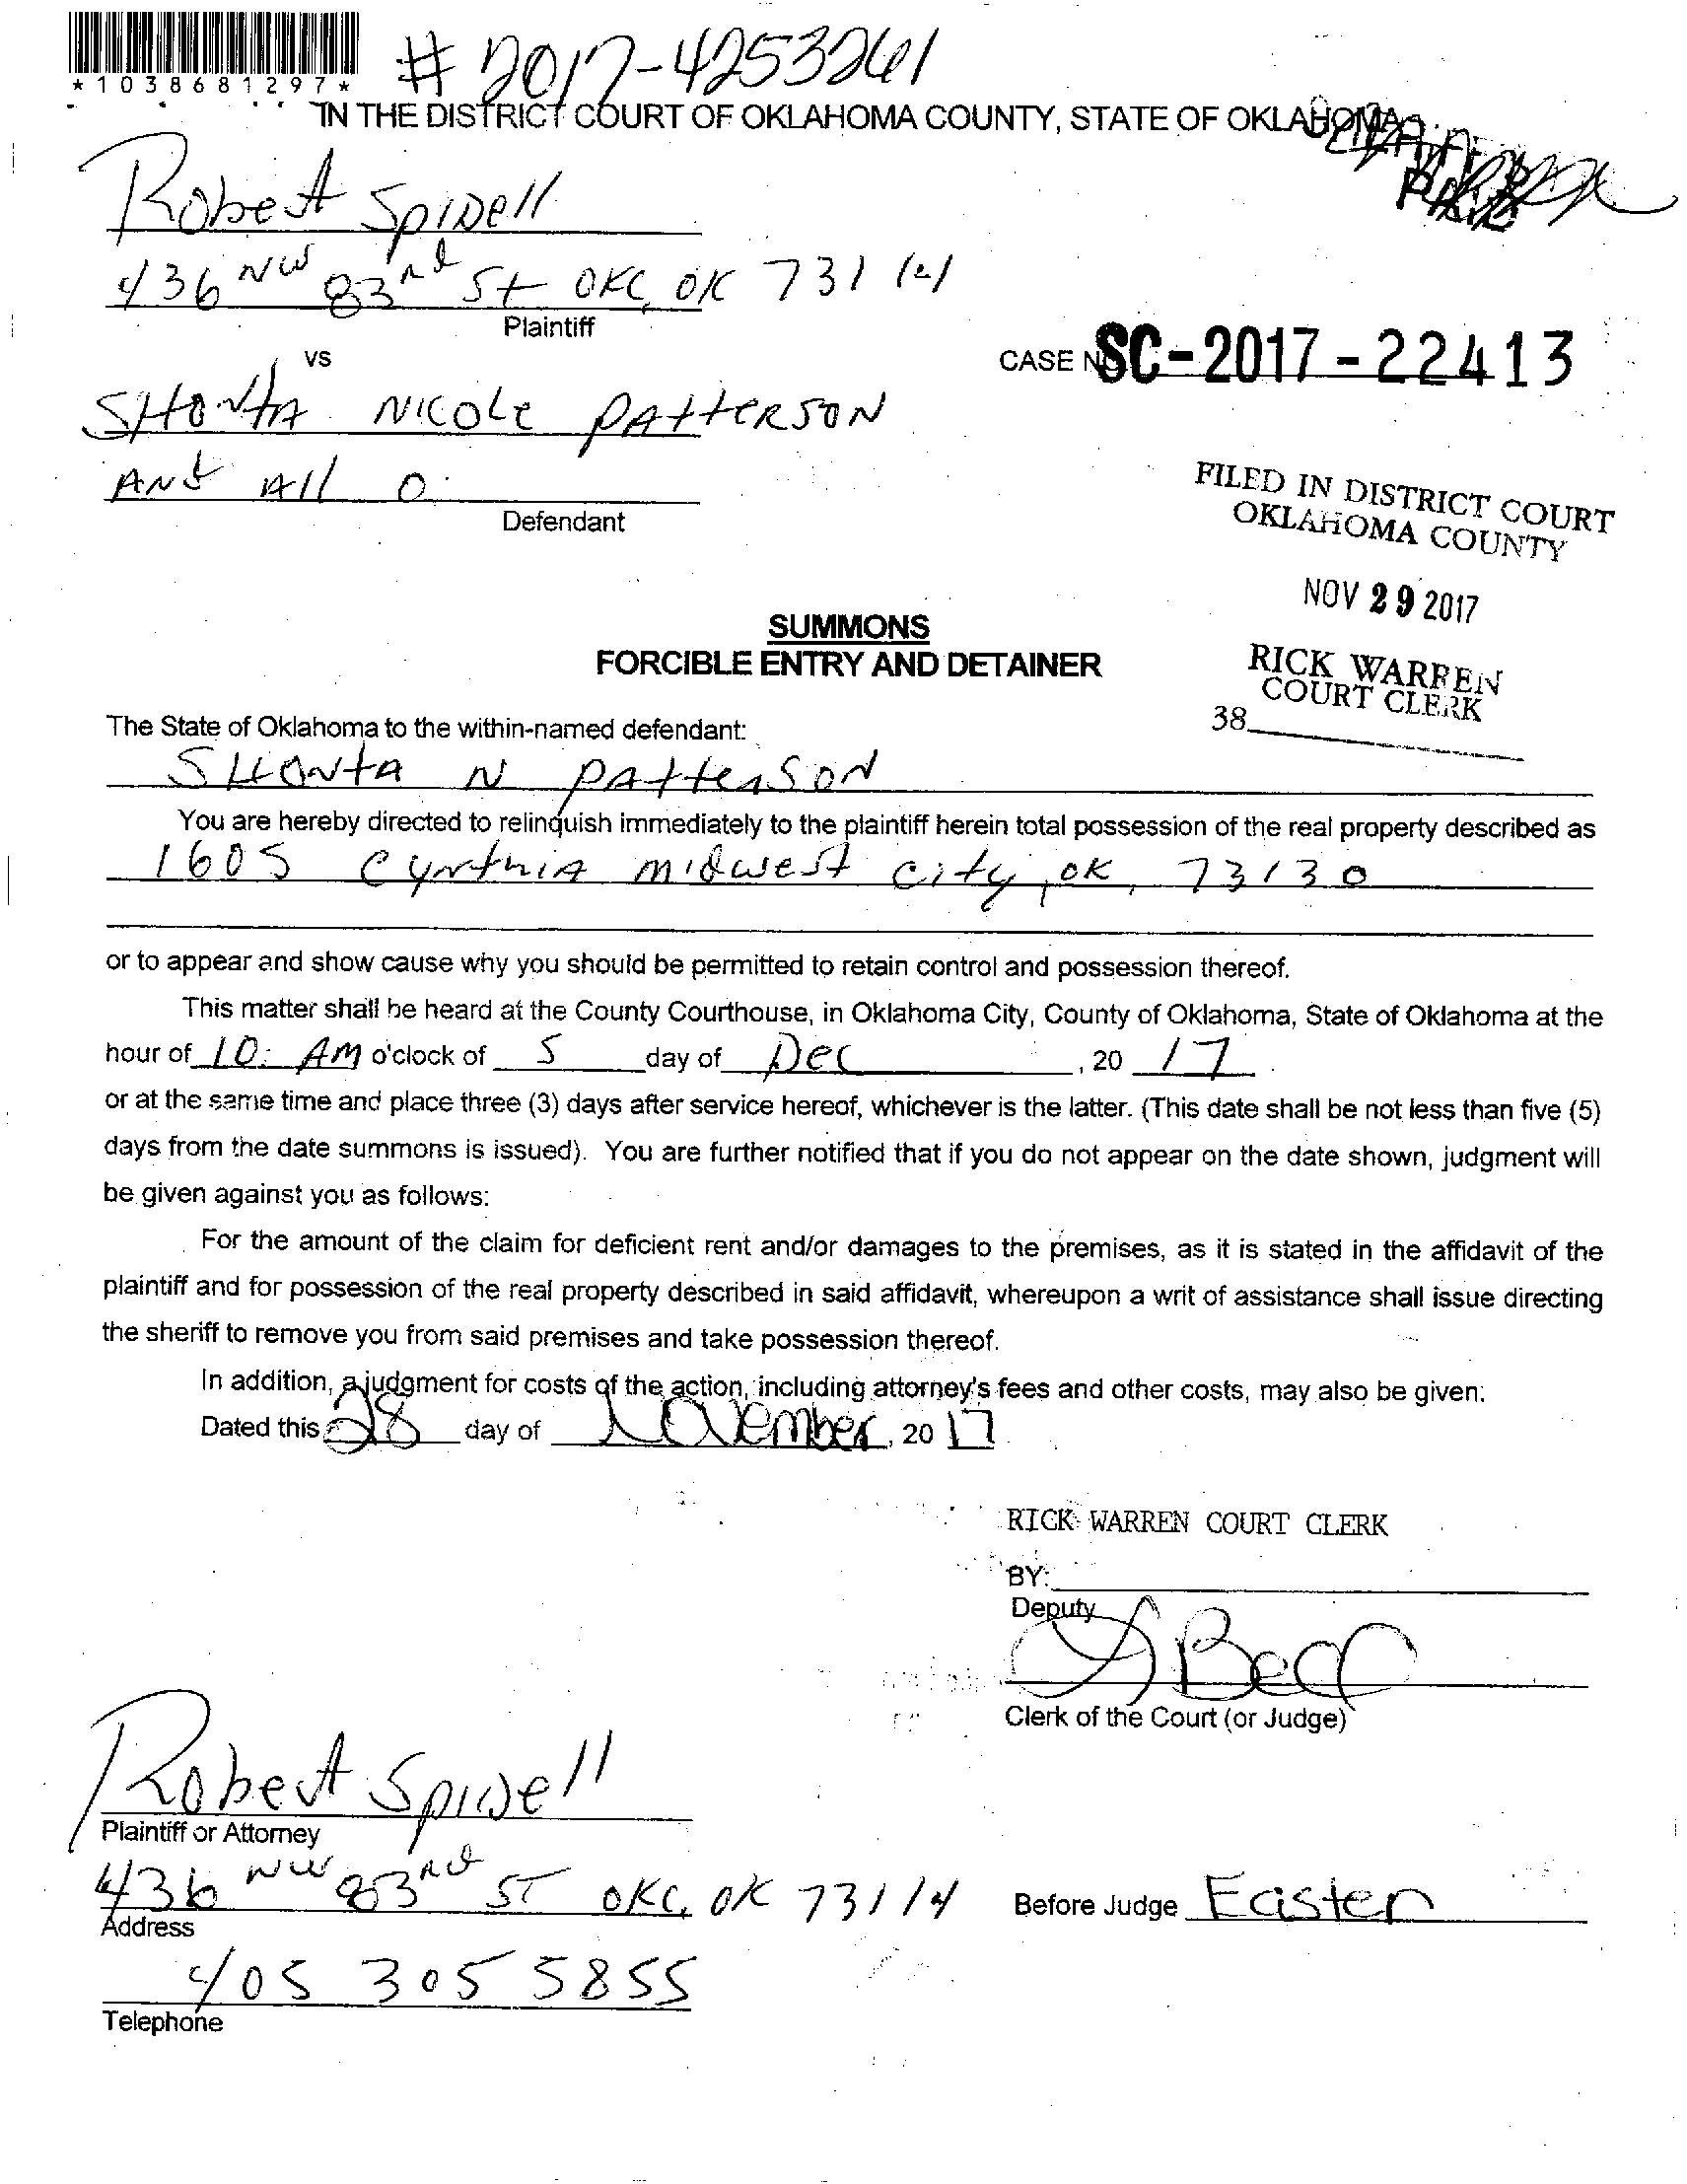 *1038681297*
# 2017-4253261
IN THE DISTRICT COURT OF OKLAHOMA COUNTY, STATE OF OKLAHOMA
Robert Spivell
436 NW 83rd St OKC, OK 73114
Plaintiff
vs
CASE NO SC-2017-22413
SHONTA NICOLE PATTERSON
AND All O
Defendant
FILED IN DISTRICT COURT
OKLAHOMA COUNTY
NOV 29 2017
SUMMONS
FORCIBLE ENTRY AND DETAINER
RICK WARREN
COURT CLERK
38
The State of Oklahoma to the within-named defendant:
SHONTA N PATTERSON
You are hereby directed to relinquish immediately to the plaintiff herein total possession of the real property described as
1605 Cynthia midwest city, OK, 73130
or to appear and show cause why you should be permitted to retain control and possession thereof.
This matter shall be heard at the County Courthouse, in Oklahoma City, County of Oklahoma, State of Oklahoma at the
hour of 10: AM o'clock of 5 day of Dec, 20 17
or at the same time and place three (3) days after service hereof, whichever is the latter. (This date shall be not less than five (5)
days from the date summons is issued). You are further notified that if you do not appear on the date shown, judgment will
be given against you as follows:
For the amount of the claim for deficient rent and/or damages to the premises, as it is stated in the affidavit of the
plaintiff and for possession of the real property described in said affidavit, whereupon a writ of assistance shall issue directing
the sheriff to remove you from said premises and take possession thereof.
In addition, a judgment for costs of the action, including attorney's fees and other costs, may also be given.
Dated this 28 day of November, 20 17
RICK WARREN COURT CLERK
BY:
Deputy
Clerk of the Court (or Judge)
Robert Spivell
Plaintiff or Attorney
436 NW 83rd ST OKC, OK 73114
Address
Before Judge Easter
405 305 5855
Telephone